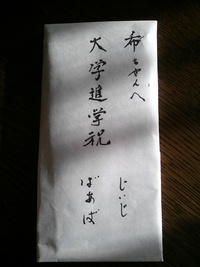 希ちゃんへ
大学進学祝
じいじ
ばあば